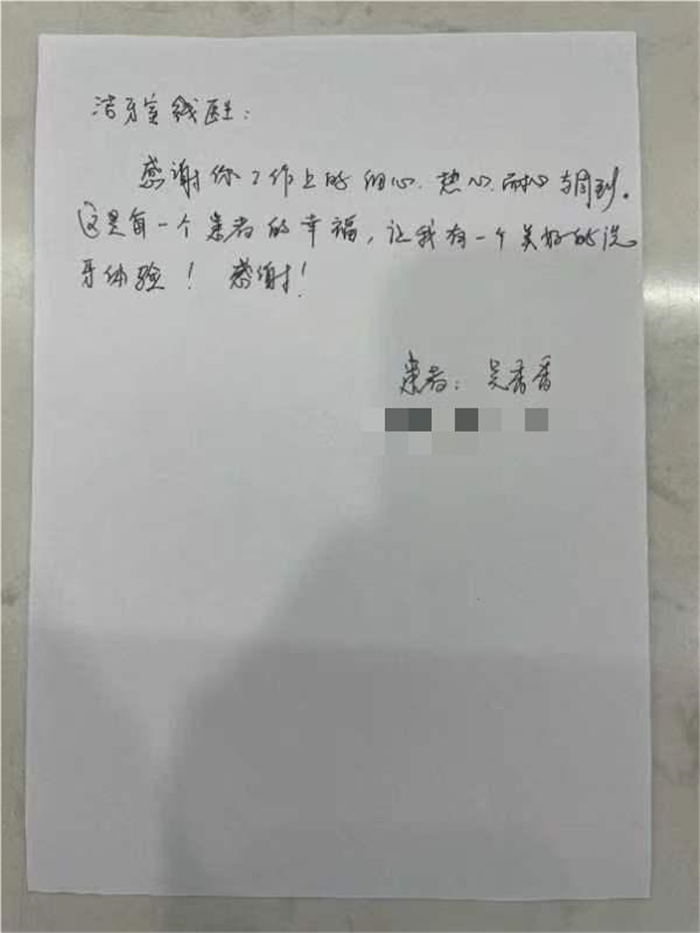 洁牙室钱医生:
感谢你工作上的细心、热心、耐心与周到。
这是每一个患者的幸福,让我有一个美好的洗
牙体验!感谢!
患者:吴秀香